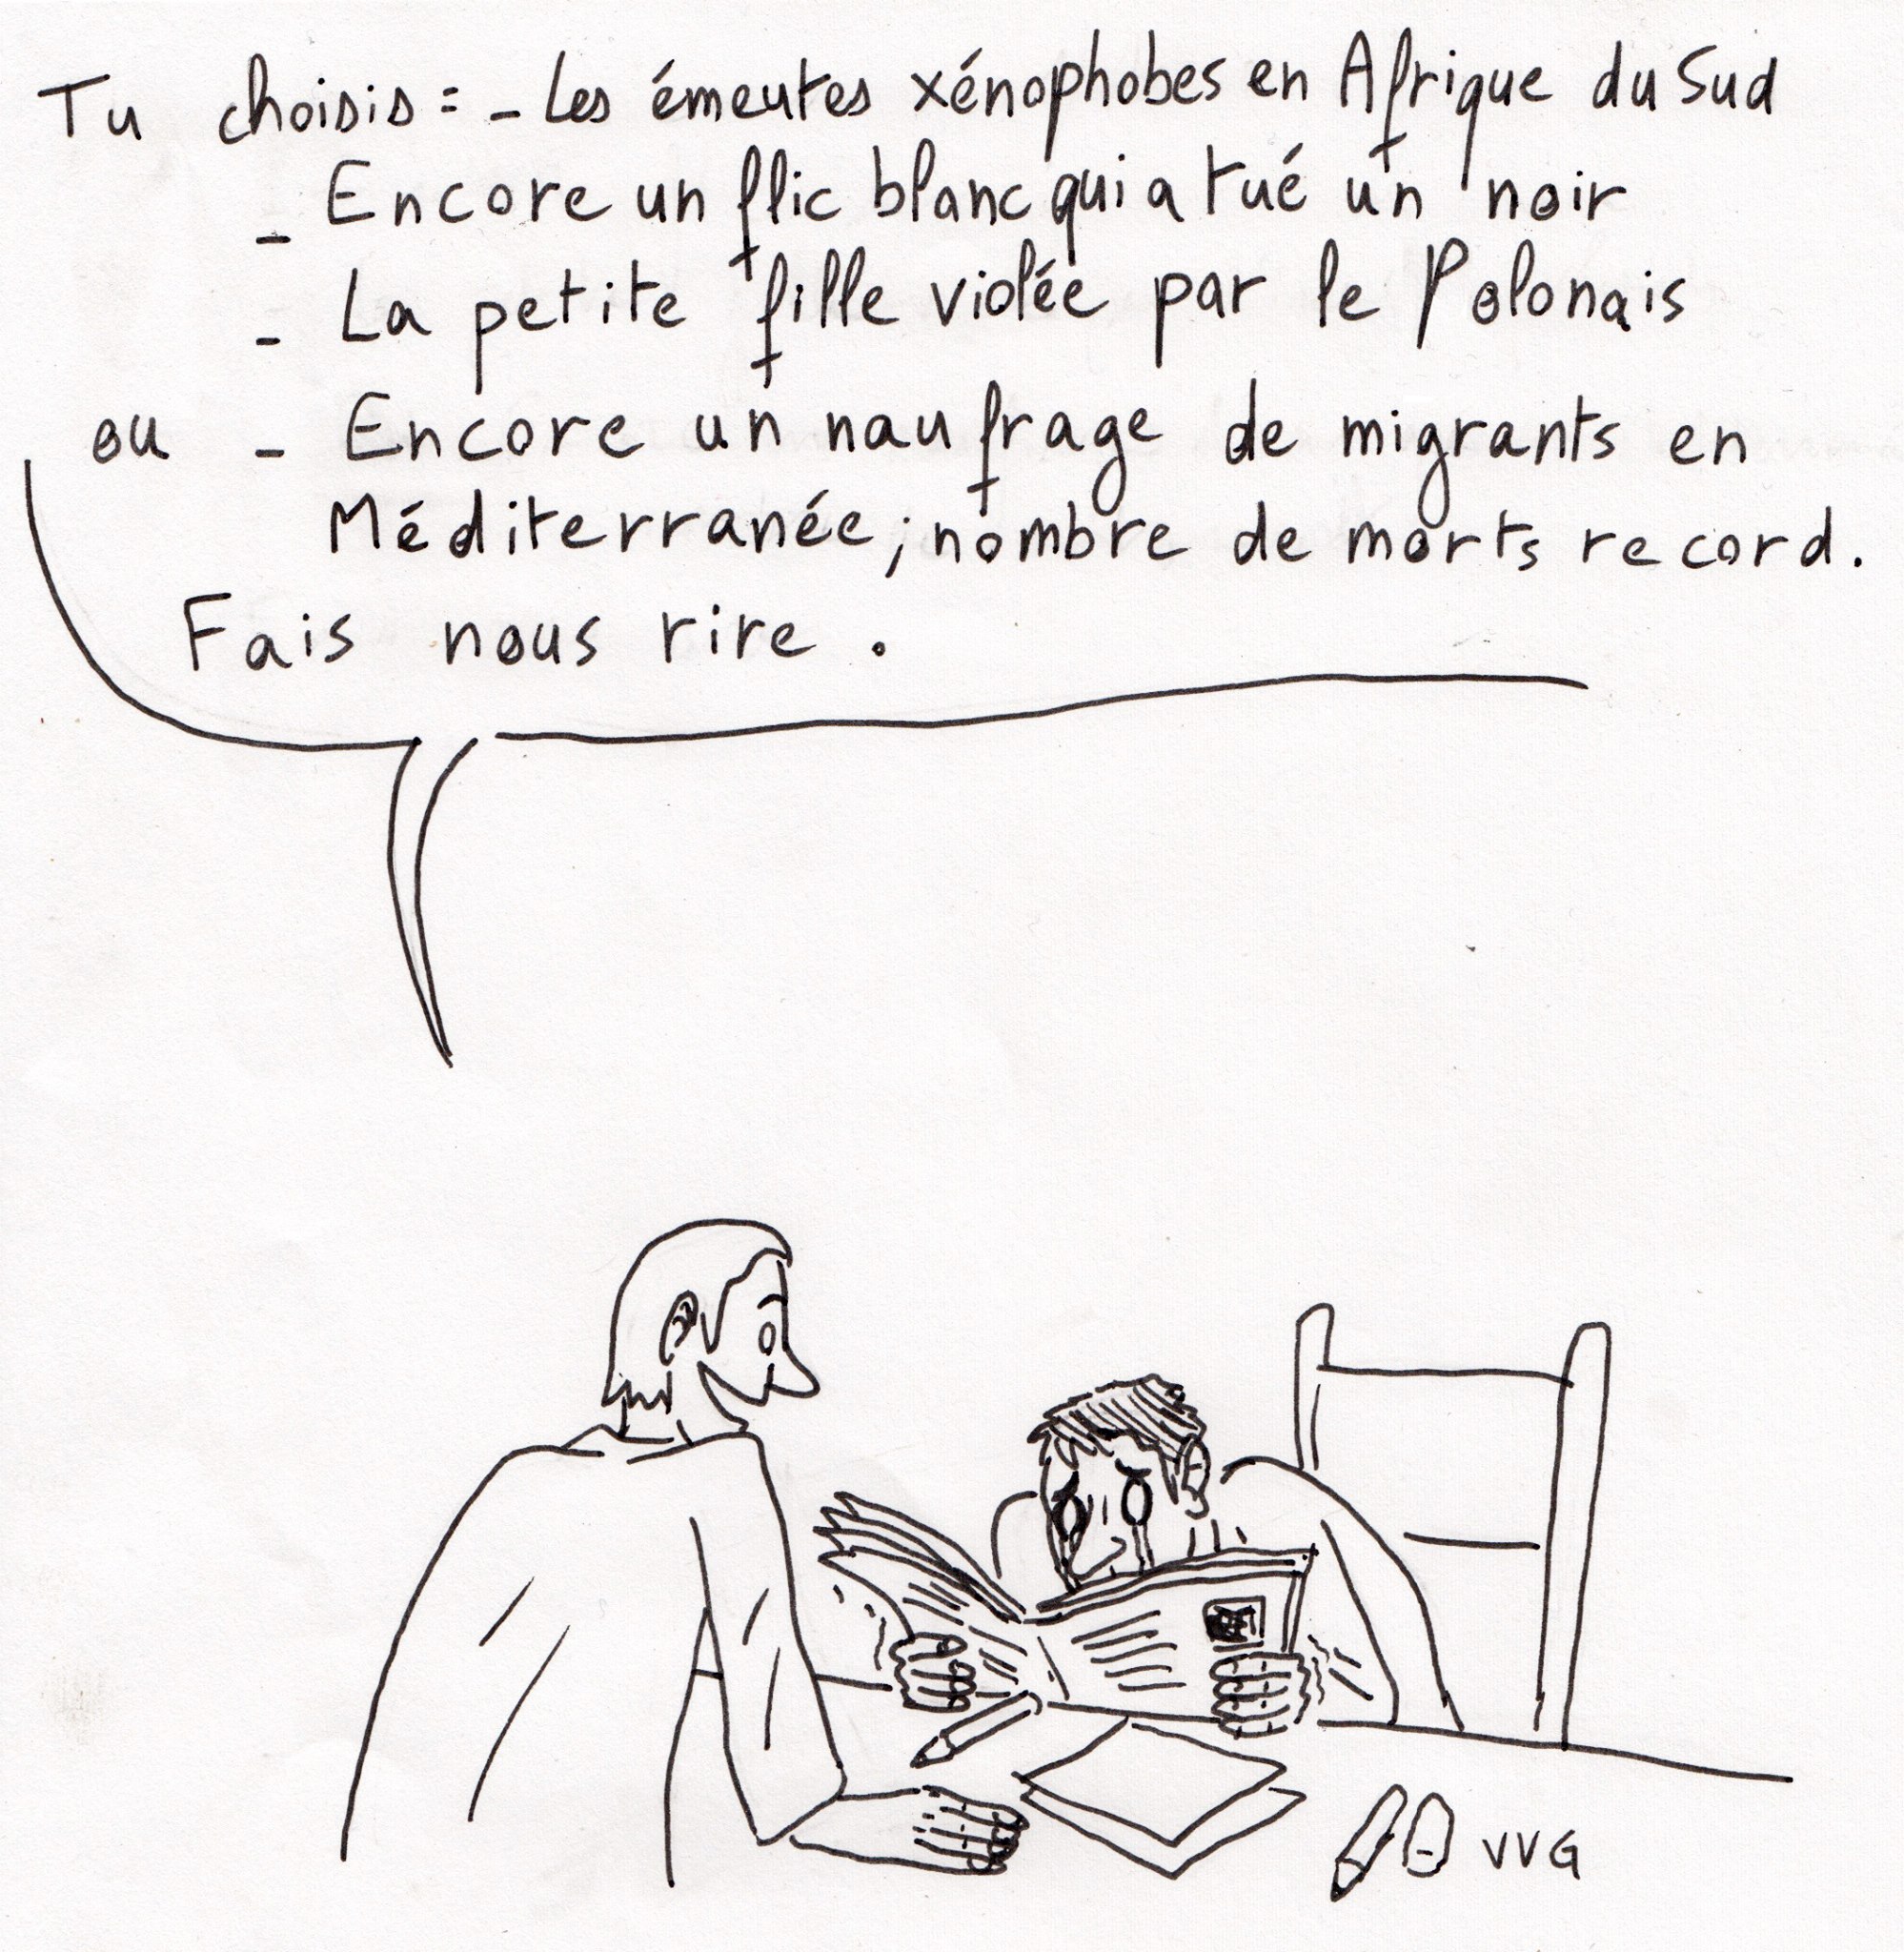 Tu choisis : - Les émeutes xénophobes en Afrique du Sud
- Encore un flic blanc qui a tué un noir
- La petite fille violée par le Polonais
ou - Encore un naufrage de migrants en
Méditerranée ; nombre de morts record.
Fais nous rire .
VVG